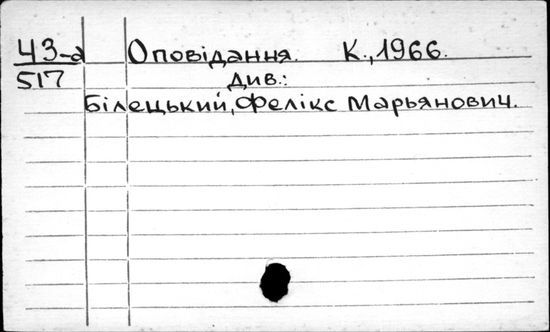 43-а Оповідання. К., 1966.
517 див.:
Білецький, Фелікс Марьянович.